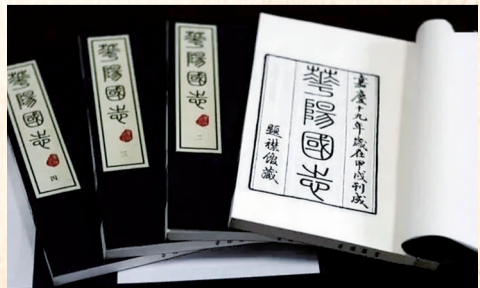 華陽國志
四
華陽國志
三
華陽國志
二
嘉慶十九年歲在甲戌刊成
華陽國志
題襟館藏